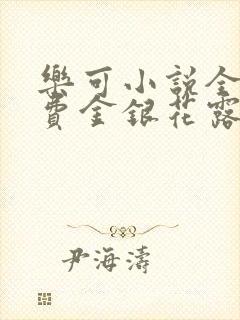 樂可小說全
費金銀花露
尹海濤